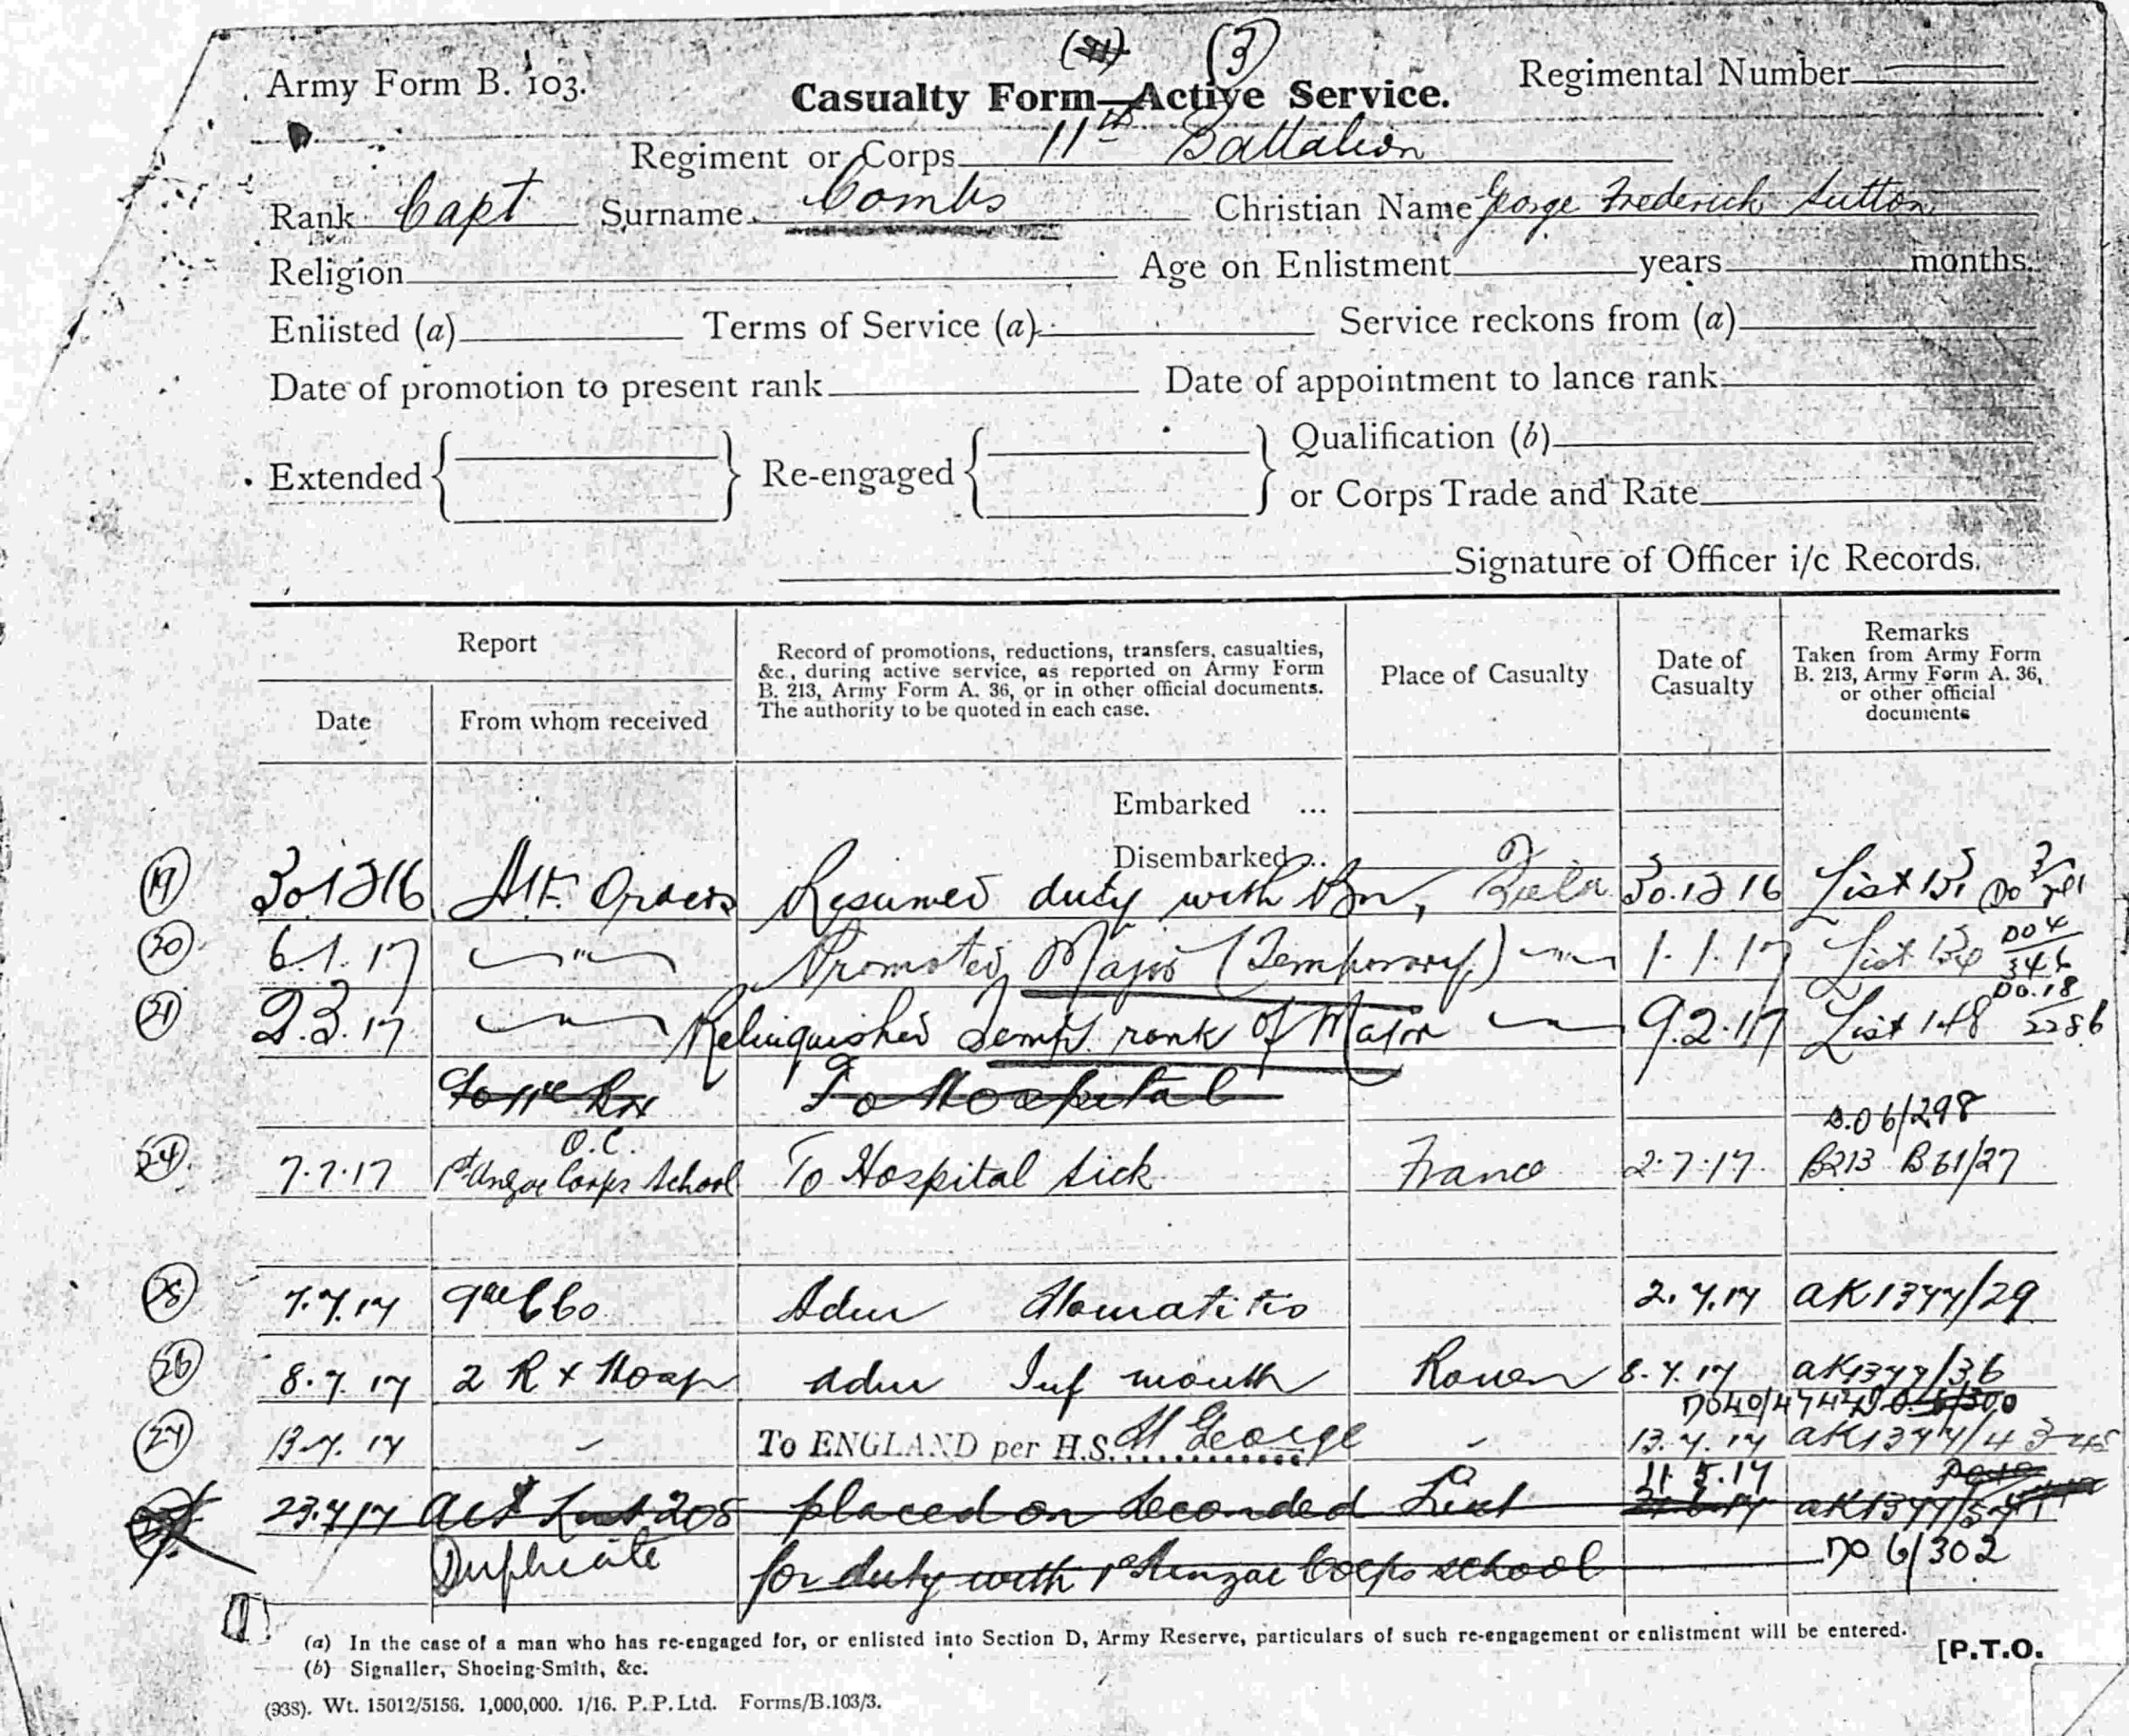 (3)
Army Form B. 103.
Casualty Form—Active Service.
Regimental Number
Regiment or Corps 11th Battalion
Rank Capt Surname Combs Christian Name George Frederick Sutton
Religion Age on Enlistment years months.
Enlisted (a) Terms of Service (a) Service reckons from (a)
Date of promotion to present rank Date of appointment to lance rank
Extended Re-engaged Qualification (b)
or Corps Trade and Rate
Signature of Officer i/c Records.
Report
Date
From whom received
Record of promotions, reductions, transfers, casualties,
&c., during active service, as reported on Army Form
B. 213, Army Form A. 36, or in other official documents.
The authority to be quoted in each case.
Place of Casualty
Date of
Casualty
Remarks
Taken from Army Form
B. 213, Army Form A. 36,
or other official
documents
Embarked ...
Disembarked ...
(19) 30 12 16 Orders Resumed duty with Bn, 30.12 16 List
(20) 6.1.17 " Promoted Major (Temporary) 1.1.17 List DO 4
346
(21) 2.3.17 Relinquished Temp. rank of Major 9.2.17 List 148 DO.18
2286
To Hospital
D.O 6/298
(24) 7.7.17 O.C.
1st Anzac Corps School To Hospital sick France 2.7.17 B213 B61/27
(25) 7.7.17 Adm Stomatitis 2.7.17 AK1377/29
(26) 8.7.17 2 R X Hosp adm Inf mouth Rouen 8.7.17 AK1377/36
(27) 13.7.17 To ENGLAND per H.S. St George 13.7.17 AK1377/43
11.5.17
23.7.17 placed on Seconded List
Duplicate for duty with 1st Anzac Corps school DO 6/302
(a) In the case of a man who has re-engaged for, or enlisted into Section D, Army Reserve, particulars of such re-engagement or enlistment will be entered.
(b) Signaller, Shoeing-Smith, &c.
[P.T.O.
(938). Wt. 15012/5156. 1,000,000. 1/16. P.P.Ltd. Forms/B.103/3.